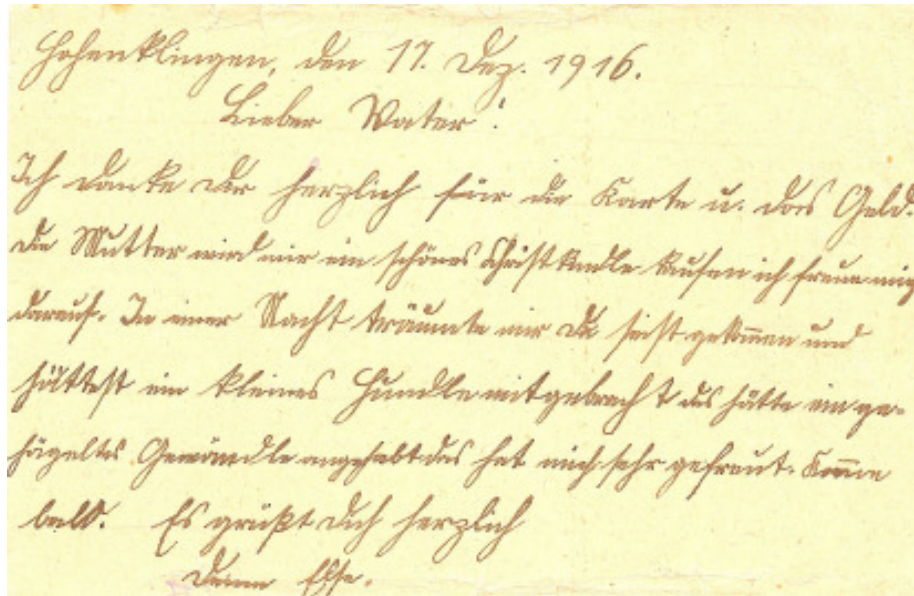 Hohenklingen, den 17. Dez. 1916.
Lieber Vater!
Ich danke dir herzlich für die Karte u. das Geld.
die Mutter wird mir ein schönes Christkindle kaufen ich freue mich
darauf. In einer Nacht träumte mir du seist gekommen und
hättest ein kleines Hundle mitgebracht das hätte ein ge-
hägeltes Gewändle angehabt das hat mich sehr gefreut. Komme
bald. Es grüßt dich herzlich
Deine Else.